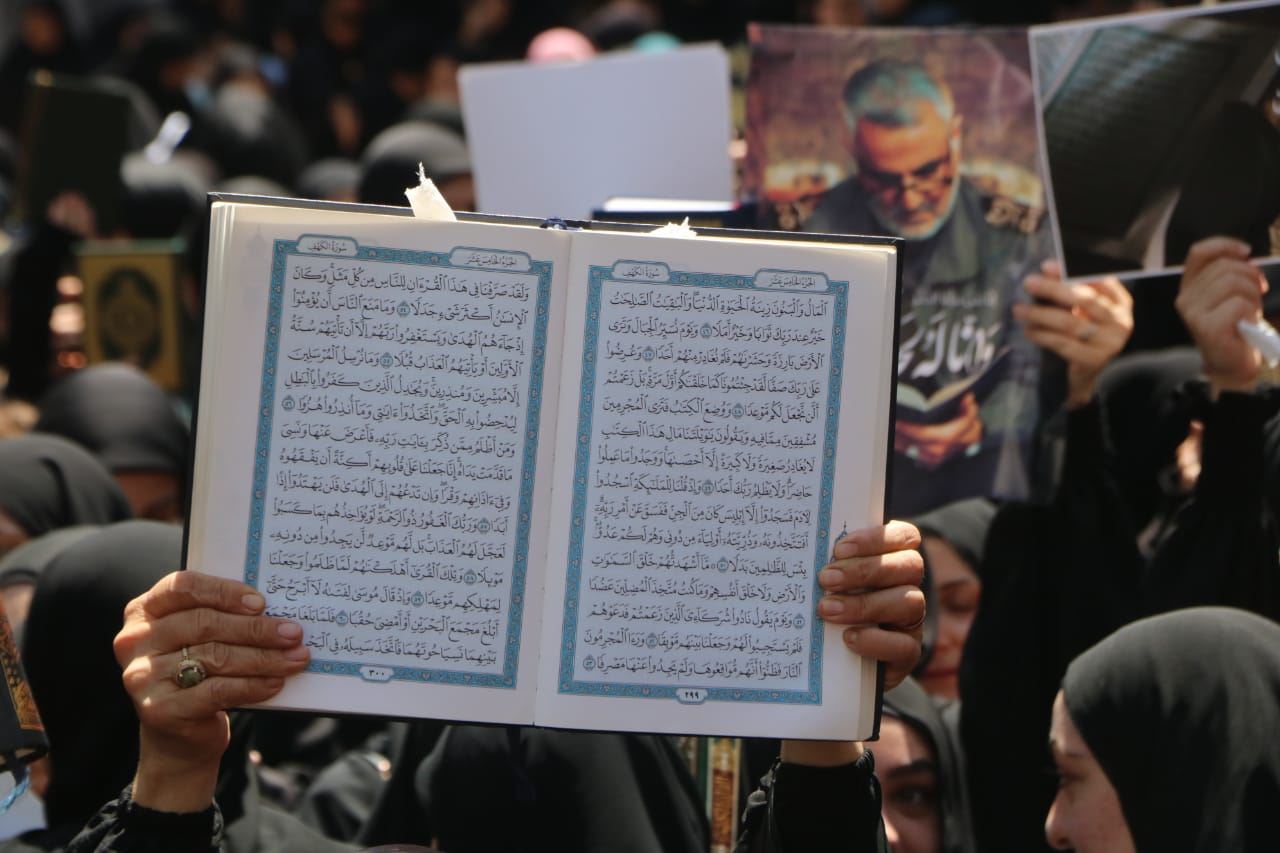 الجزء الخامس عشر
سورة الكهف
ٱلْمَالُ وَٱلْبَنُونَ زِينَةُ ٱلْحَيَوٰةِ ٱلدُّنْيَا وَٱلْبَٰقِيَٰتُ ٱلصَّٰلِحَٰتُ
خَيْرٌ عِندَ رَبِّكَ ثَوَابًا وَخَيْرٌ أَمَلًا ٤٦ وَيَوْمَ نُسَيِّرُ ٱلْجِبَالَ وَتَرَى
ٱلْأَرْضَ بَارِزَةً وَحَشَرْنَٰهُمْ فَلَمْ نُغَادِرْ مِنْهُمْ أَحَدًا ٤٧ وَعُرِضُوا۟
عَلَىٰ رَبِّكَ صَفًّا لَّقَدْ جِئْتُمُونَا كَمَا خَلَقْنَٰكُمْ أَوَّلَ مَرَّةٍۭ بَلْ زَعَمْتُمْ
أَلَّن نَّجْعَلَ لَكُم مَّوْعِدًا ٤٨ وَوُضِعَ ٱلْكِتَٰبُ فَتَرَى ٱلْمُجْرِمِينَ
مُشْفِقِينَ مِمَّا فِيهِ وَيَقُولُونَ يَٰوَيْلَتَنَا مَالِ هَٰذَا ٱلْكِتَٰبِ
لَا يُغَادِرُ صَغِيرَةً وَلَا كَبِيرَةً إِلَّآ أَحْصَىٰهَا وَوَجَدُوا۟ مَا عَمِلُوا۟
حَاضِرًا وَلَا يَظْلِمُ رَبُّكَ أَحَدًا ٤٩ وَإِذْ قُلْنَا لِلْمَلَٰٓئِكَةِ ٱسْجُدُوا۟
لِءَادَمَ فَسَجَدُوٓا۟ إِلَّآ إِبْلِيسَ كَانَ مِنَ ٱلْجِنِّ فَفَسَقَ عَنْ أَمْرِ رَبِّهِۦٓ
أَفَتَتَّخِذُونَهُۥ وَذُرِّيَّتَهُۥٓ أَوْلِيَآءَ مِن دُونِى وَهُمْ لَكُمْ عَدُوٌّۢ
بِئْسَ لِلظَّٰلِمِينَ بَدَلًا ٥٠ مَّآ أَشْهَدتُّهُمْ خَلْقَ ٱلسَّمَٰوَٰتِ
وَٱلْأَرْضِ وَلَا خَلْقَ أَنفُسِهِمْ وَمَا كُنتُ مُتَّخِذَ ٱلْمُضِلِّينَ عَضُدًا
٥١ وَيَوْمَ يَقُولُ نَادُوا۟ شُرَكَآءِىَ ٱلَّذِينَ زَعَمْتُمْ فَدَعَوْهُمْ
فَلَمْ يَسْتَجِيبُوا۟ لَهُمْ وَجَعَلْنَا بَيْنَهُم مَّوْبِقًا ٥٢ وَرَءَا ٱلْمُجْرِمُونَ
ٱلنَّارَ فَظَنُّوٓا۟ أَنَّهُم مُّوَاقِعُوهَا وَلَمْ يَجِدُوا۟ عَنْهَا مَصْرِفًا ٥٣
٢٩٩
الجزء الخامس عشر
سورة الكهف
وَلَقَدْ صَرَّفْنَا فِى هَٰذَا ٱلْقُرْءَانِ لِلنَّاسِ مِن كُلِّ مَثَلٍ وَكَانَ
ٱلْإِنسَٰنُ أَكْثَرَ شَىْءٍ جَدَلًا ٥٤ وَمَا مَنَعَ ٱلنَّاسَ أَن يُؤْمِنُوٓا۟
إِذْ جَآءَهُمُ ٱلْهُدَىٰ وَيَسْتَغْفِرُوا۟ رَبَّهُمْ إِلَّآ أَن تَأْتِيَهُمْ سُنَّةُ
ٱلْأَوَّلِينَ أَوْ يَأْتِيَهُمُ ٱلْعَذَابُ قُبُلًا ٥٥ وَمَا نُرْسِلُ ٱلْمُرْسَلِينَ
إِلَّا مُبَشِّرِينَ وَمُنذِرِينَ وَيُجَٰدِلُ ٱلَّذِينَ كَفَرُوا۟ بِٱلْبَٰطِلِ
لِيُدْحِضُوا۟ بِهِ ٱلْحَقَّ وَٱتَّخَذُوٓا۟ ءَايَٰتِى وَمَآ أُنذِرُوا۟ هُزُوًا ٥٦
وَمَنْ أَظْلَمُ مِمَّن ذُكِّرَ بِـَٔايَٰتِ رَبِّهِۦ فَأَعْرَضَ عَنْهَا وَنَسِىَ
مَا قَدَّمَتْ يَدَاهُ إِنَّا جَعَلْنَا عَلَىٰ قُلُوبِهِمْ أَكِنَّةً أَن يَفْقَهُوهُ
وَفِىٓ ءَاذَانِهِمْ وَقْرًا وَإِن تَدْعُهُمْ إِلَى ٱلْهُدَىٰ فَلَن يَهْتَدُوٓا۟ إِذًا
أَبَدًا ٥٧ وَرَبُّكَ ٱلْغَفُورُ ذُو ٱلرَّحْمَةِ لَوْ يُؤَاخِذُهُم بِمَا كَسَبُوا۟
لَعَجَّلَ لَهُمُ ٱلْعَذَابَ بَل لَّهُم مَّوْعِدٌ لَّن يَجِدُوا۟ مِن دُونِهِۦ
مَوْئِلًا ٥٨ وَتِلْكَ ٱلْقُرَىٰٓ أَهْلَكْنَٰهُمْ لَمَّا ظَلَمُوا۟ وَجَعَلْنَا
لِمَهْلِكِهِم مَّوْعِدًا ٥٩ وَإِذْ قَالَ مُوسَىٰ لِفَتَىٰهُ لَآ أَبْرَحُ حَتَّىٰٓ
أَبْلُغَ مَجْمَعَ ٱلْبَحْرَيْنِ أَوْ أَمْضِىَ حُقُبًا ٦٠ فَلَمَّا بَلَغَا مَجْمَعَ
بَيْنِهِمَا نَسِيَا حُوتَهُمَا فَٱتَّخَذَ سَبِيلَهُۥ فِى
٣٠٠